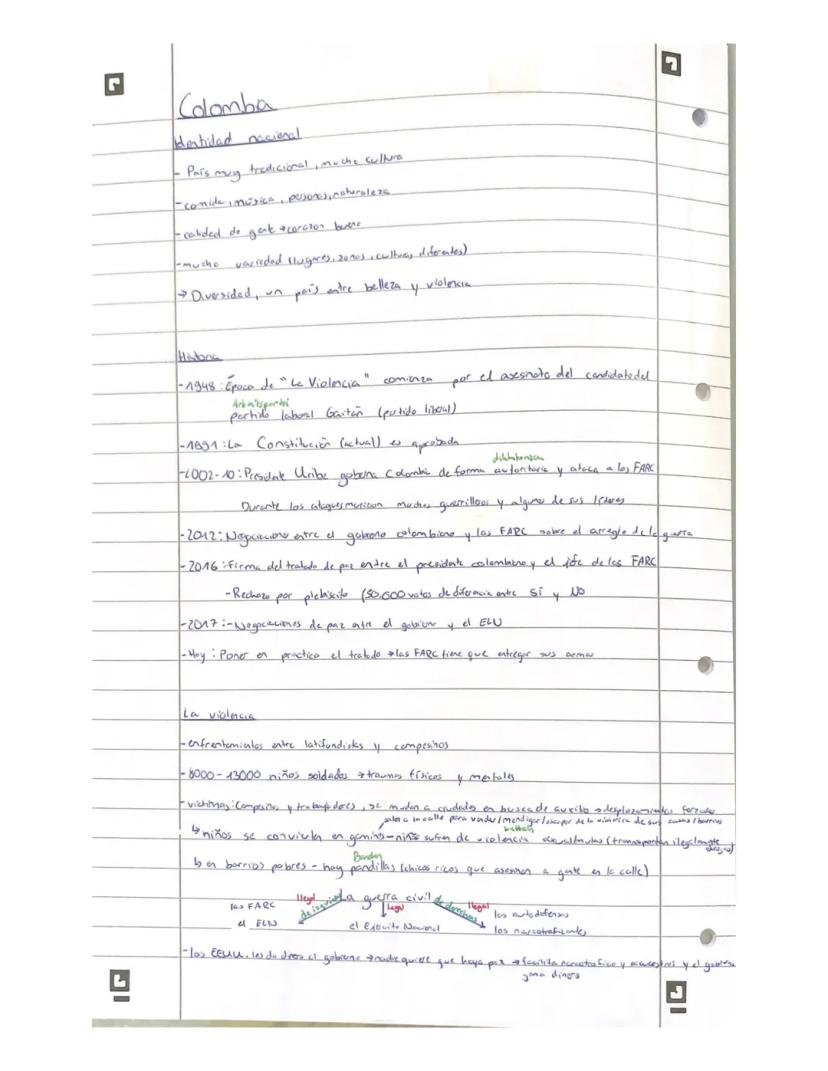 Colomba
Identidad nacional
- País muy tradicional, mucha cultura
- comida, música, personas, naturaleza
- calidad de gente → corazon bueno
- mucha variedad (lugares, zonas, culturas diferentes)
→ Diversidad, un país entre belleza y violencia
Historia
- 1948: Época de "La Violencia" comienza por el asesinato del candidato del
Arbeiterpartei
partido laboral Gaitán (partido liberal)
- 1991: La Constitución (actual) es aprobada
diktatorisch
- 2002-10: Presidente Uribe gobierna Colombia de forma autoritaria y ataca a las FARC
Durante los ataques murieron muchos guerrilleros y algunos de sus líderes
- 2012: Negociaciones entre el gobierno colombiano y las FARC sobre el arreglo de la guerra
- 2016: Firma del tratado de paz entre el presidente colombiano y el jefe de las FARC
- Rechazo por plebiscito (50.000 votos de diferencia entre Sí y NO
- 2017: - Negociaciones de paz entre el gobierno y el ELN
- Hoy: Poner en practica el tratado → las FARC tiene que entregar sus armas
La violencia
- enfrentamientos entre latifundistas y campesinos
- 8000 - 13000 niños soldados → traumas físicos y mentales
- victimas: Campesinos y trabajadores, se mudan a ciudades en busca de auxilio → desplazamientos forzados
salen a la calle para vender/mendigar/escapar de la violencia de sus casas/barrios
↳ niños se convierten en gamines - niños sufren de violencia sexual/mulas (transportan ilegalmente
drogas)
Banden
↳ en barrios pobres - hay pandillas (chicos ricos que asesinan a gente en la calle)
Ilegal La guerra civil Ilegal
de izquierda Legal de derecha
las FARC el Ejército Nacional los autodefensas
el ELN los narcotraficantes
- los EEUU. les da dinero al gobierno → nadie quiere que haya paz → facilita narcotrafico y secuestros y el gobierno
gana dinero